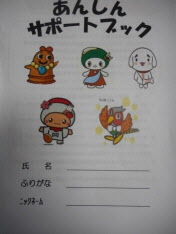 あんしん
サポートブック
氏　名
ふりがな
ニックネーム